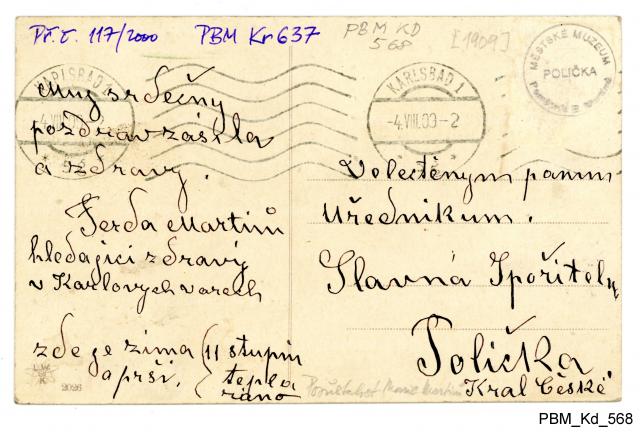 Př.č. 117/2000 PBM Kr 637
PBM KD
568
[1909]
MĚSTSKÉ MUZEUM
POLIČKA
KARLSBAD 1
-4.VIII.09-2
KARLSBAD 1
4.VIII.09
Muj srdečný
pozdrav zásila
a zdravy.
Ferda Martinů
hledající zdraví
v Karlovych varech
zde je zima
a prší.
(11 stupin
tepla
ráno
Velectěnym panum
Uřednikum.
Slavná Spořitelna
Polička
Kral České
2026
PBM_Kd_568